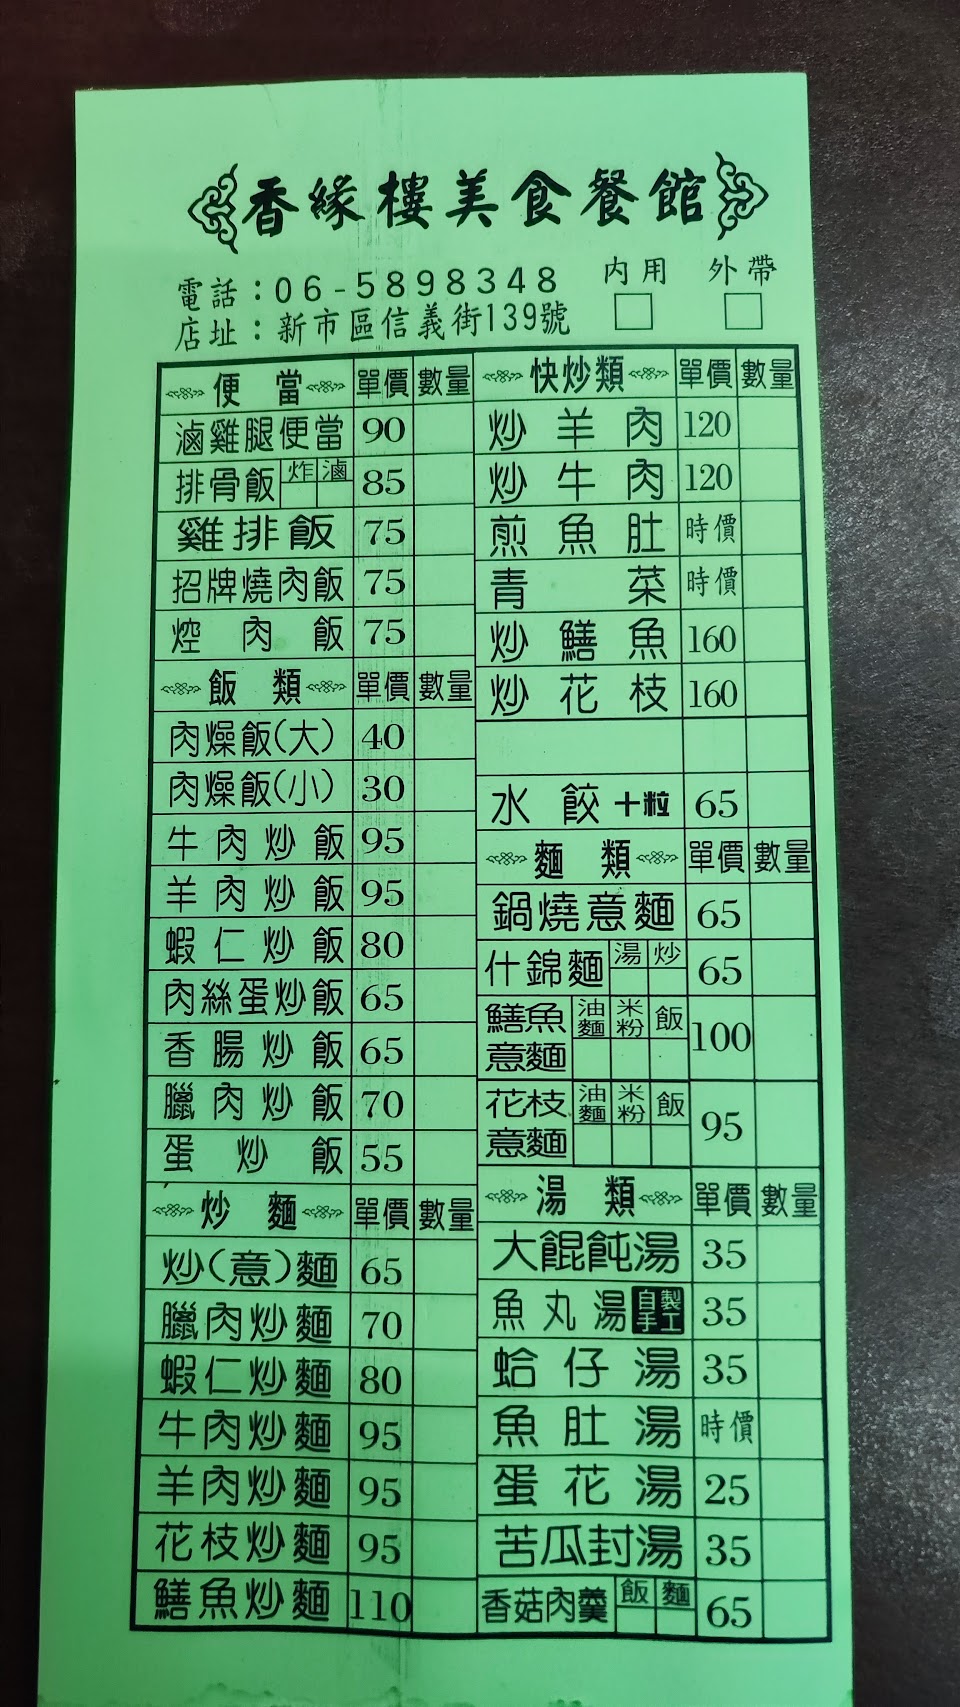 香緣樓美食餐館
電話：06-5898348
店址：新市區信義街139號
內用 外帶
便當 單價 數量
滷雞腿便當 90
排骨飯 炸 滷 85
雞排飯 75
招牌燒肉飯 75
焢肉飯 75
飯類 單價 數量
肉燥飯(大) 40
肉燥飯(小) 30
牛肉炒飯 95
羊肉炒飯 95
蝦仁炒飯 80
肉絲蛋炒飯 65
香腸炒飯 65
臘肉炒飯 70
蛋炒飯 55
炒麵 單價 數量
炒(意)麵 65
臘肉炒麵 70
蝦仁炒麵 80
牛肉炒麵 95
羊肉炒麵 95
花枝炒麵 95
鱔魚炒麵 110
快炒類 單價 數量
炒羊肉 120
炒牛肉 120
煎魚肚 時價
青菜 時價
炒鱔魚 160
炒花枝 160
水餃十粒 65
麵類 單價 數量
鍋燒意麵 65
什錦麵 湯 炒 65
鱔魚意麵 油麵 米粉 飯 100
花枝意麵 油麵 米粉 飯 95
湯類 單價 數量
大餛飩湯 35
魚丸湯 自製手工 35
蛤仔湯 35
魚肚湯 時價
蛋花湯 25
苦瓜封湯 35
香菇肉羹 飯 麵 65